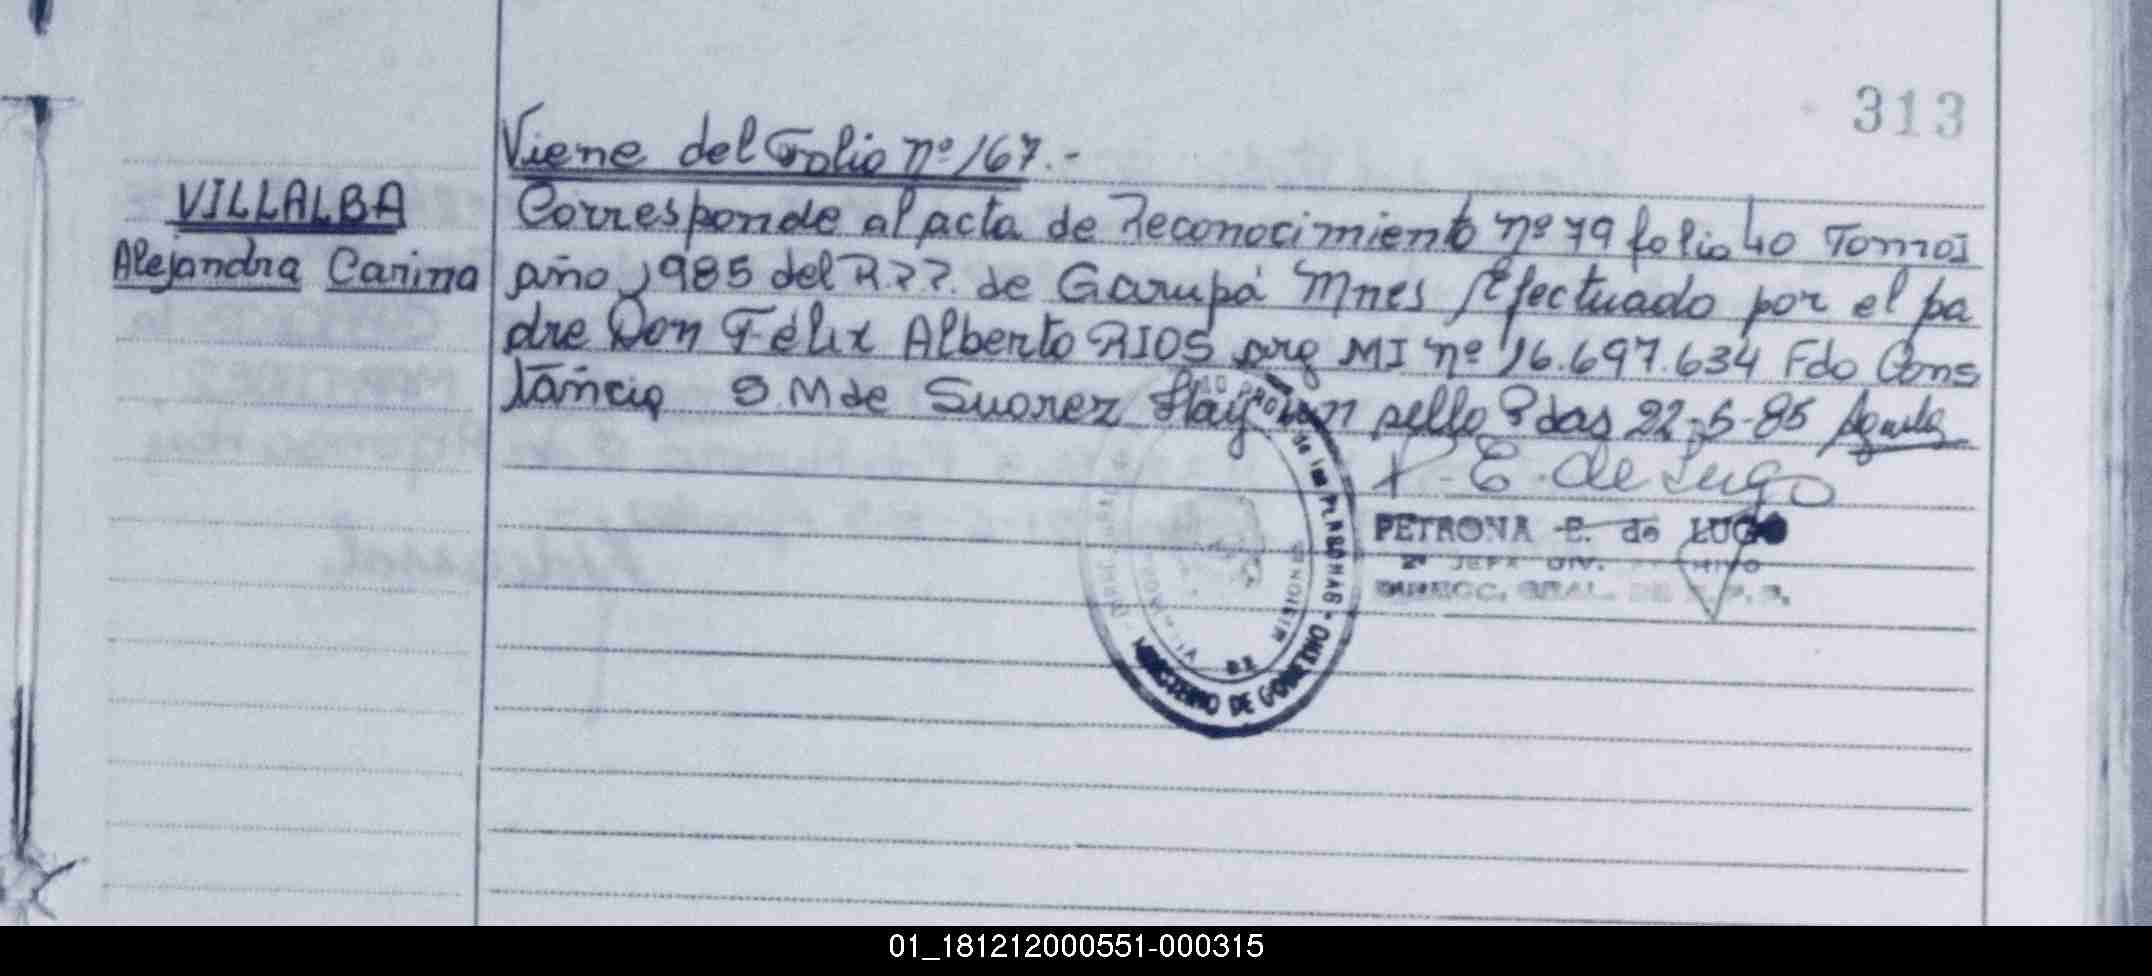 313
Viene del Folio nº 167.-
VILLALBA
Alejandra Carina
Corresponde al acta de Reconocimiento nº 79 folio 40 Tomo I
año 1985 del R.P.P. de Garupá Mnes Efectuado por el pa
dre Don Félix Alberto RIOS arg MI nº 16.697.634 Fdo Cons
tancia S. M de Suarez Hay un sello Pdas 22-5-85
P. E. de Lugo
PETRONA E. de LUGO
2º JEFA DIV. ARCHIVO
DIRECC. GRAL. DE R. P. P.
de las PERSONAS - MINISTERIO DE GOBIERNO
MISIONES
01_181212000551-000315